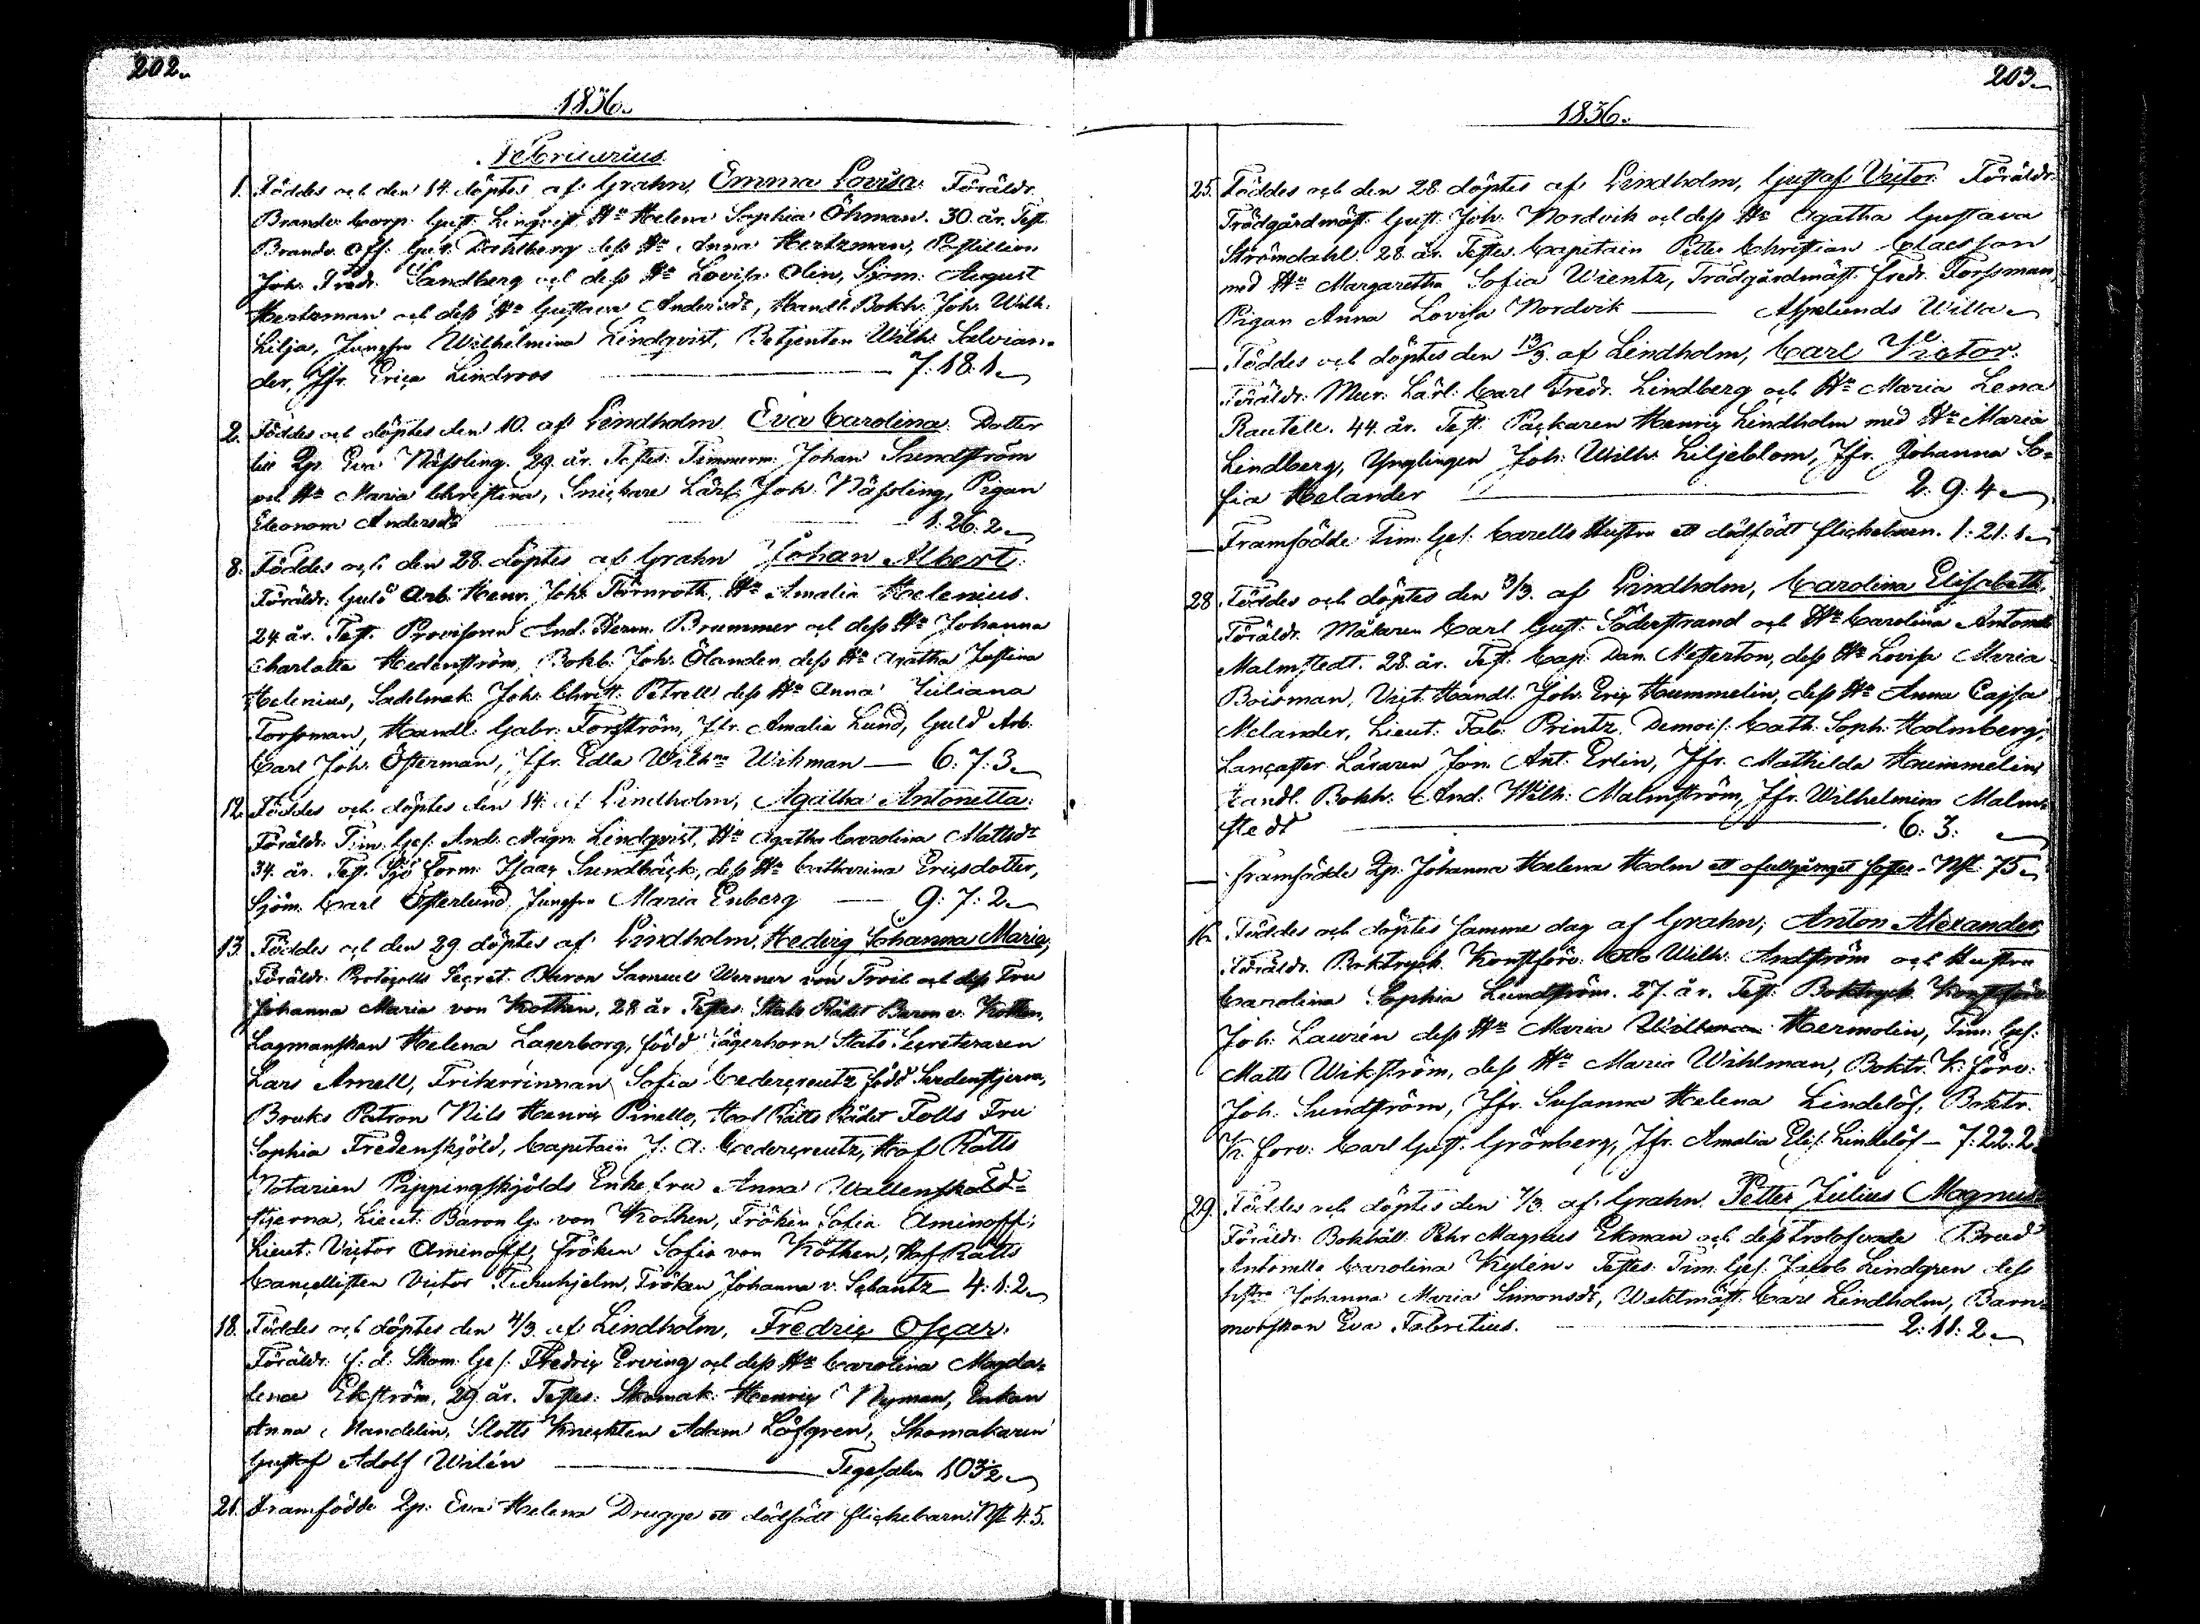 202.
1836.
Februarius.
1. Föddes och den 14. döptes af Grahn, Emma Lovisa. Föräldr.
Brandv. Corp. Gust. Lingqvist, Hu Helena Sophia Öhman. 30. år. Test.
Brandv. Off. Gust. Dahlberg dess Hu Anna Hertzman, Postillion
Joh. Fredr. Sandberg och dess Hu Lovisa Olin, Sjöm. August
Hertzman och dess Hu Gustava Andersdr, Handl. Bokh. Joh. Wilh.
Lilja, Jungfru Wilhelmina Lindqvist, Betjenten Wilh. Salvian-
der, Jfr. Erica Lindroos — 7. 18. 1.
2. Föddes och döptes den 10. af Lindholm Eva Carolina. Dotter
till Qp. Eva Nässling. 29. år. Testes: Timmerm. Johan Sundström
och Hu Maria Christina, Snickare Lärl. Joh. Nässling, Pigan
Eleonora Andersdr — 1. 26. 2.
8. Föddes och den 28. döptes af Grahn Johan Albert.
Föräldr. Guld Arb. Henr. Joh. Törnroth, Hu Amalia Helenius.
24. år. Test. Provisoren And. Herm. Brummer och dess Hu Johanna
Charlotta Hedenström, Bokb. Joh. Ölander, dess Hu Agatha Justina
Helenius, Sadelmak. Joh. Christ. Petrell dess Hu Anna Juliana
Forssman, Handl. Gabr. Forsström, Jfr. Amalia Lund, Guld Arb.
Carl Joh. Österman, Jfr. Edla Wilhna Wikman — 6. 7. 3.
12. Föddes och döptes den 14. af Lindholm, Agatha Antonetta.
Föräldr. Tim. Ges. And. Magn. Lindqvist, Hu Agatha Carolina Mattsdr
34. år. Test. Sjö Torm. Isaac Sundbäck, dess Hu Catharina Ericsdotter,
Sjöm. Carl Österlund, Jungfru Maria Enberg — 9. 7. 2.
13. Föddes och den 29. döptes af Lindholm, Hedvig Johanna Maria,
Föräldr. Protocolls Secret. Baron Samuel Werner von Troil och dess Fru
Johanna Maria von Kothen, 28 år Testes: Stats Rådet Baron v. Kothen,
Lagmanskan Helena Lagerborg, född Jägerhorn Stats Secreteraren
Lars Arnell, Friherrinnan Sofia Cedercreutz född Svedenstjerna,
Bruks Patron Nils Henric Pinello, Hof Rätts Rådet Tolls Fru
Sophia Fredenskjöld, Capitain J. A. Cedercreutz, Hof Rätts
Notarien Pippingskjölds Enke fru Anna Wallensköld-
stjerna, Lieut. Baron G. von Kothen, Fröken Sofia Aminoff,
Lieut. Victor Aminoff, Fröken Sofia von Köthen, Hof Rätts
Cancellisten Victor Furuhjelm, Fröken Johanna v. Schantz — 4. 1. 2.
18. Föddes och döptes den 4/3. af Lindholm, Fredric Oscar.
Föräldr. f. d. Skom. Ges. Fredric Erving och dess Hu Carolina Magda-
lena Ekström, 29. år. Testes: Skomak. Henric Nyman, Enkan
Anna Mandelin, Slotts Knechten Adam Löfgren, Skomakaren
Gustaf Adolf Wilén — Tegelsalen 103 1/2
21. Framfödde Qp. Eva Helena Drugge ett dödfödt flickebarn. Nst 45.
203.
1836.
25. Föddes och den 28. döptes af Lindholm, Gustaf Victor. Föräldr.
Trädgårdmäst. Gust. Joh. Nordvik och dess Hu Agatha Gustava
Strömdahl. 28. år. Testes. Capitain Petter Christian Claesson
med Hu Margaretha Sofia Wientz, Trädgårdmäst. Fredr. Forssman,
Pigan Anna Lovisa Nordvik — Aspelunds Willa
— Föddes och döptes den 13/3. af Lindholm, Carl Victor.
Föräldr. Mur. Lärl. Carl Fredr. Lindberg och Hu Maria Lena
Rautell. 44. år. Test. Packaren Henric Lindholm med Hu Maria
Lindberg, Ynglingen Joh. Wilh. Liljeblom, Jfr. Johanna So-
fia Helander — 2. 9. 4.
— Framfödde Tim. Ges. Carells Hustru ett dödfödt flickebarn. 1. 21. 1.
28. Föddes och döptes den 3/3. af Lindholm, Carolina Elisabeth.
Föräldr. Målaren Carl Gust. Söderstrand och Hu Carolina Antoinette
Malmstedt. 28. år. Test. Cap. Dan. Messerton, dess Hu Lovisa Maria
Boisman, Vict. Handl. Joh. Eric Hummelin, dess Hu Anna Cajsa
Melander, Lieut. Fab. Printz, Demois. Cath. Soph. Holmberg,
Lancaster Läraren Jon. Ant. Erlin, Jfr. Mathilda Hummelin,
Handl. Bokh. And. Wilh. Malmström, Jfr. Wilhelmina Malm-
stedt — 6. 3.
— framfödde Qp. Johanna Helena Holm ett ofullgånget foster. Nst. 75
16. Föddes och döptes samma dag af Grahn, Anton Alexander,
Föräldr. Boktryck. Konstförv. Otto Wilh. Andström och Hustru
Carolina Sophia Lundström. 27. år. Test. Boktryck. Konstförv.
Joh. Laurén dess Hu Maria Hermolin, Tim. Ges.
Matts Wikström, dess Hu Maria Wihlman, Boktr. K. förv.
Joh. Sundström, Jfr. Susanna Helena Lindelöf, Boktr.
K. förv. Carl Gust. Grönberg, Jfr. Amalia Elis. Lindelöf — 7. 22. 2
29. Föddes och döptes den 7/3. af Grahn. Petter Julius Magnus
Föräldr. Bokhåll. Pehr Magnus Ekman och dess trolofvade Brud
Antonetta Carolina Kylén. Testes. Tim. Ges. Jacob Lindgren dess
hstru Johanna Maria Simonsdr, Waktmäst. Carl Lindholm, Barn-
morskan Eva Fabritius. — 2. 11. 2.